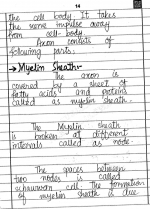 14
the cell body. It takes
the nerve impulse away
from cell-body.
Axon consists of
following parts.
→ Myelin Sheath-
The axon is
covered by a sheet of
fatty acids and proteins
called as myelin sheath.
The Myelin sheath
is broken at different
intervals called as node.
The spaces between
two nodes is called
schawann cell. The formation
of myelin sheath is due